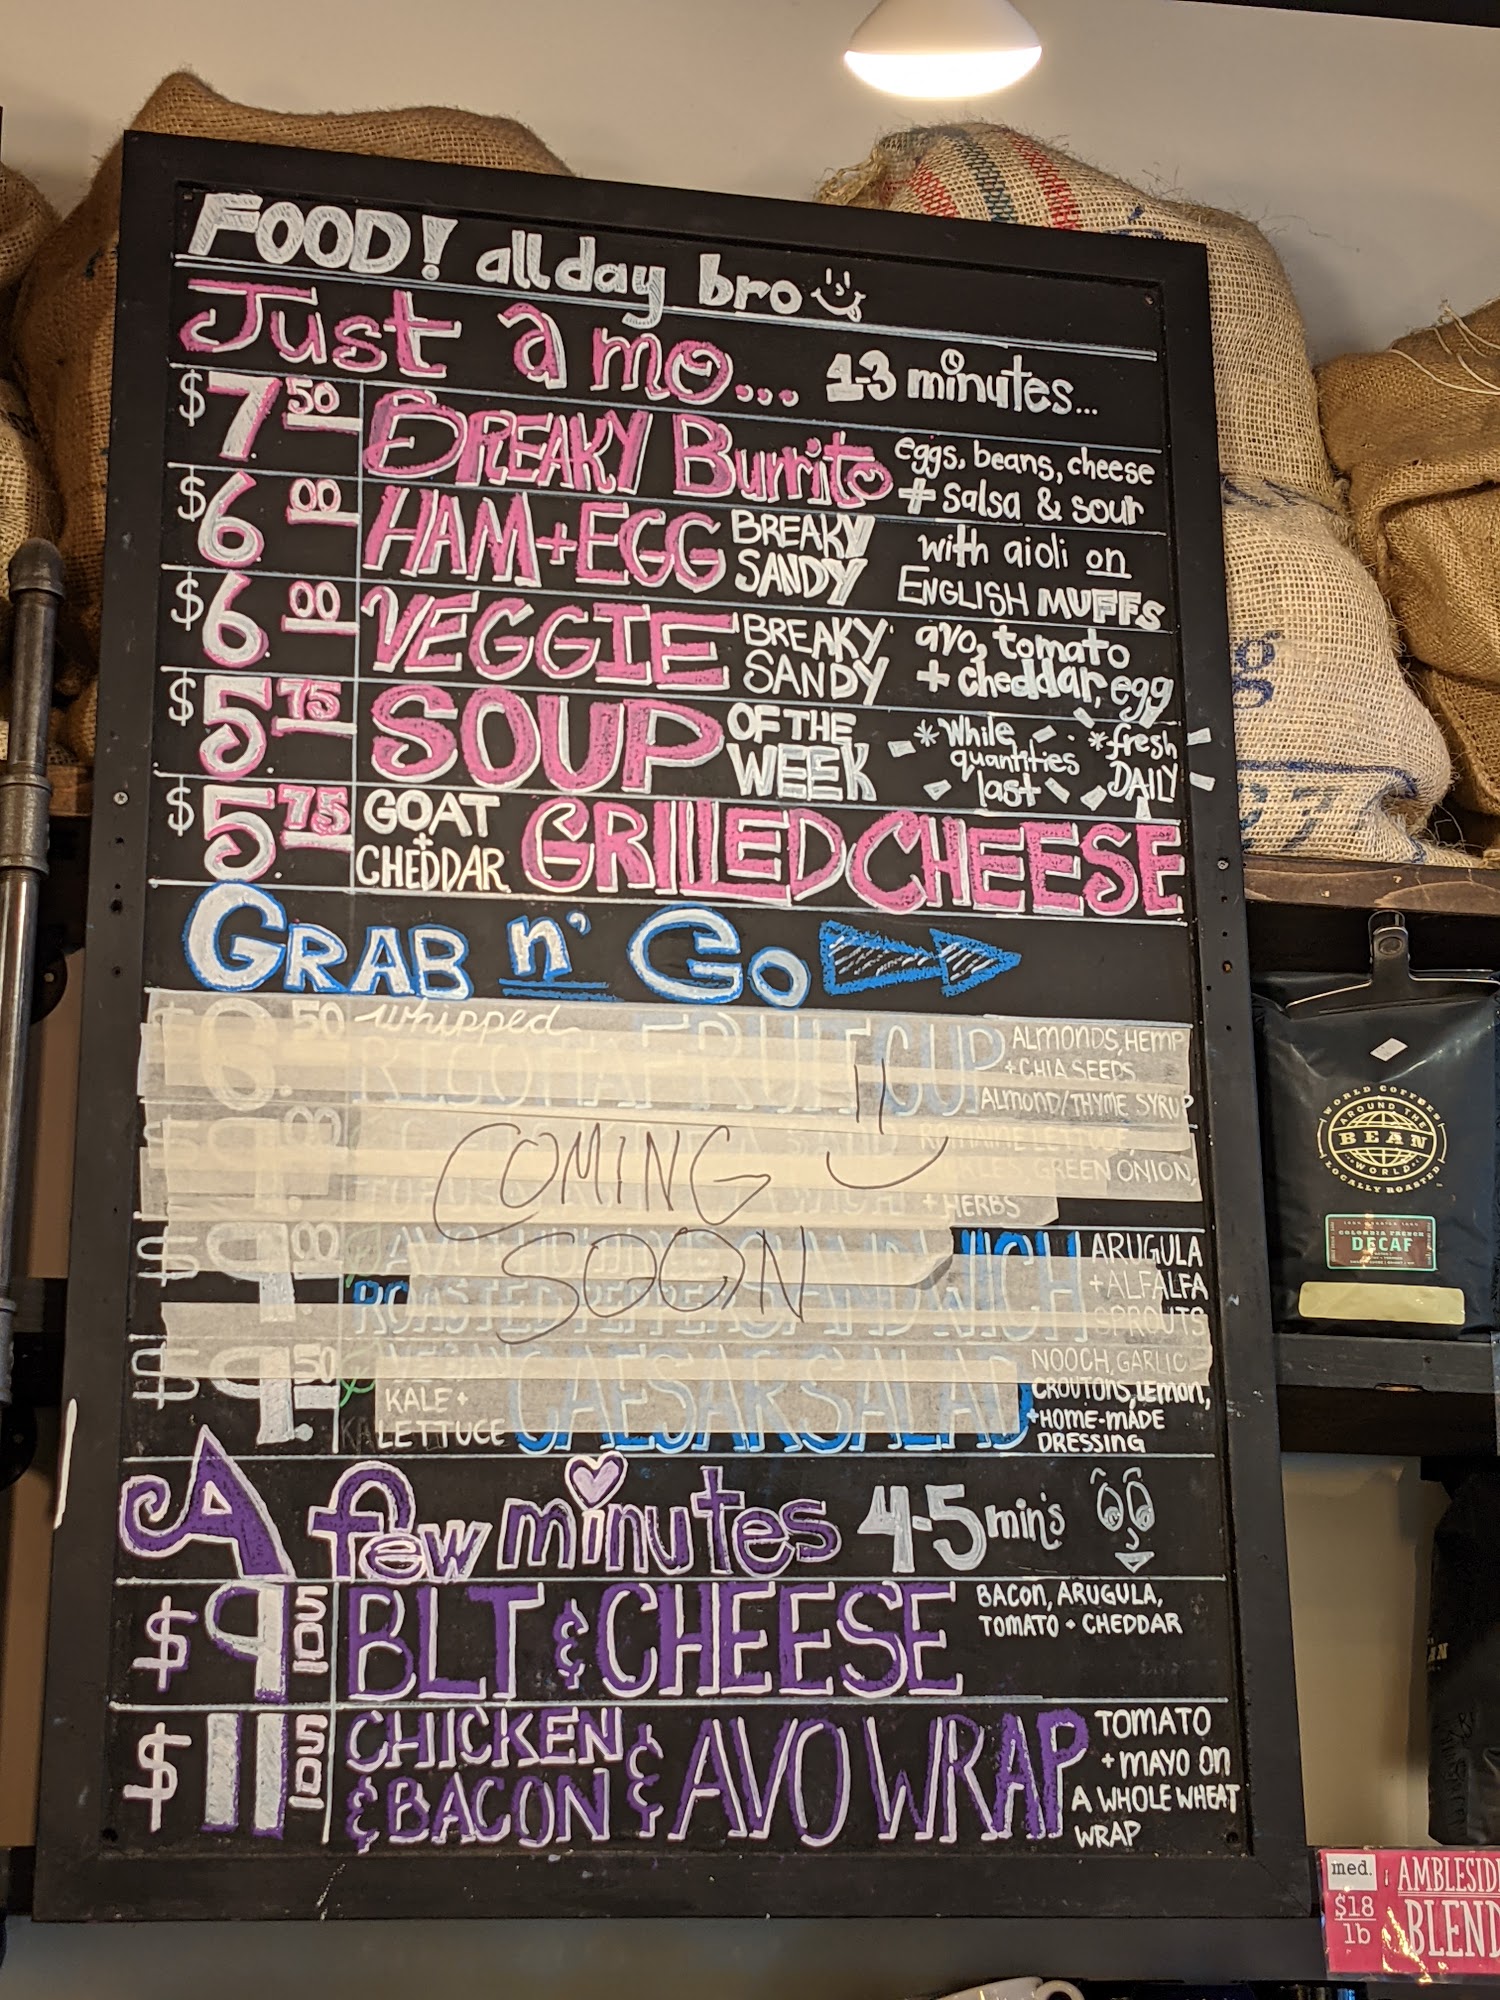 FOOD! all day bro
Just a mo... 1-3 minutes...
$7.50 BREAKY Burrito eggs, beans, cheese
+ salsa & sour
$6.00 HAM + EGG BREAKY SANDY with aioli on
ENGLISH MUFFS
$6.00 VEGGIE BREAKY SANDY avo, tomato
+ cheddar, egg
$5.75 SOUP OF THE WEEK *While quantities last *fresh DAILY
$5.75 GOAT + CHEDDAR GRILLED CHEESE
GRAB n' GO
$6.50 whipped RICOTTA FRUIT CUP ALMONDS, HEMP
+ CHIA SEEDS
ALMOND/THYME SYRUP
ROMAINE LETTUCE,
GREEN ONION,
+ HERBS
COMING
SOON
SANDWICH ARUGULA
ROASTED PEPPER + ALFALFA
SPROUTS
$9.50 CAESAR SALAD NOOCH, GARLIC
KALE + CROUTONS, LEMON,
LETTUCE +HOME-MADE
DRESSING
A few minutes 4-5 min's
$9.50 BLT & CHEESE BACON, ARUGULA,
TOMATO + CHEDDAR
$11.50 CHICKEN & BACON & AVO WRAP TOMATO
+ MAYO ON
A WHOLE WHEAT
WRAP
WORLD COFFEES
AROUND THE
BEAN
WORLD
LOCALLY ROASTED
COLOMBIA FRENCH
DECAF
med.
$18
lb
AMBLESIDE
BLEND